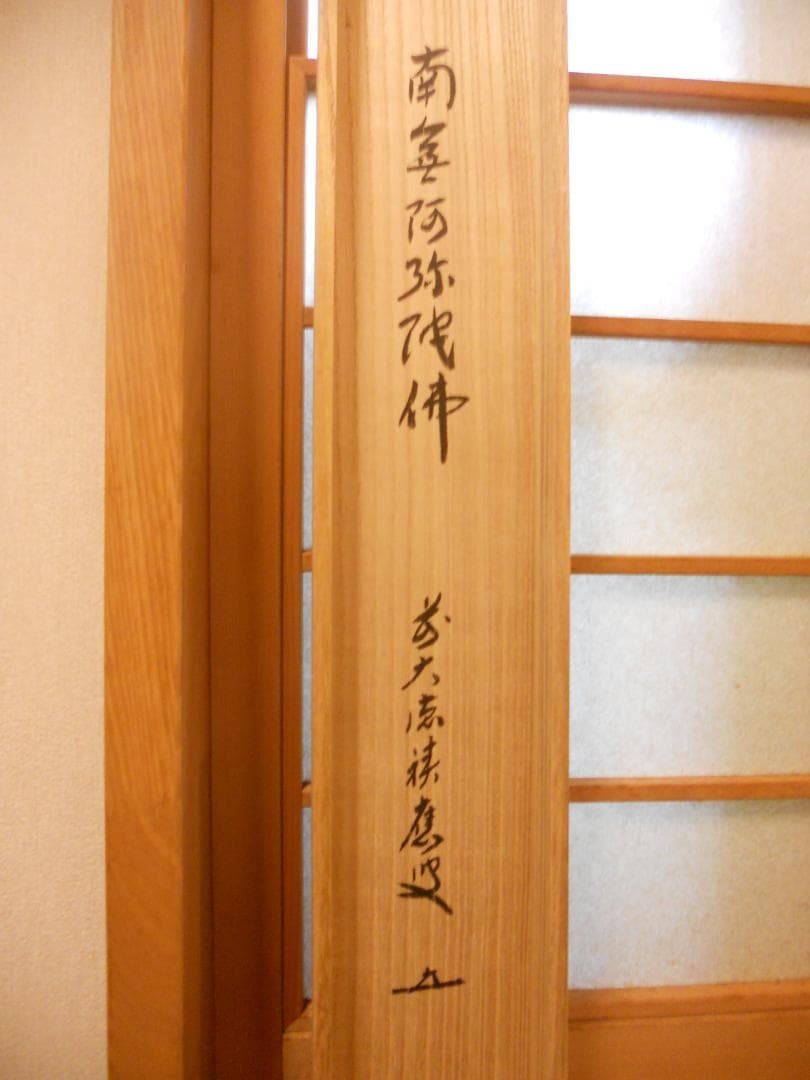 南無阿弥陀佛
前大徳禅應叟